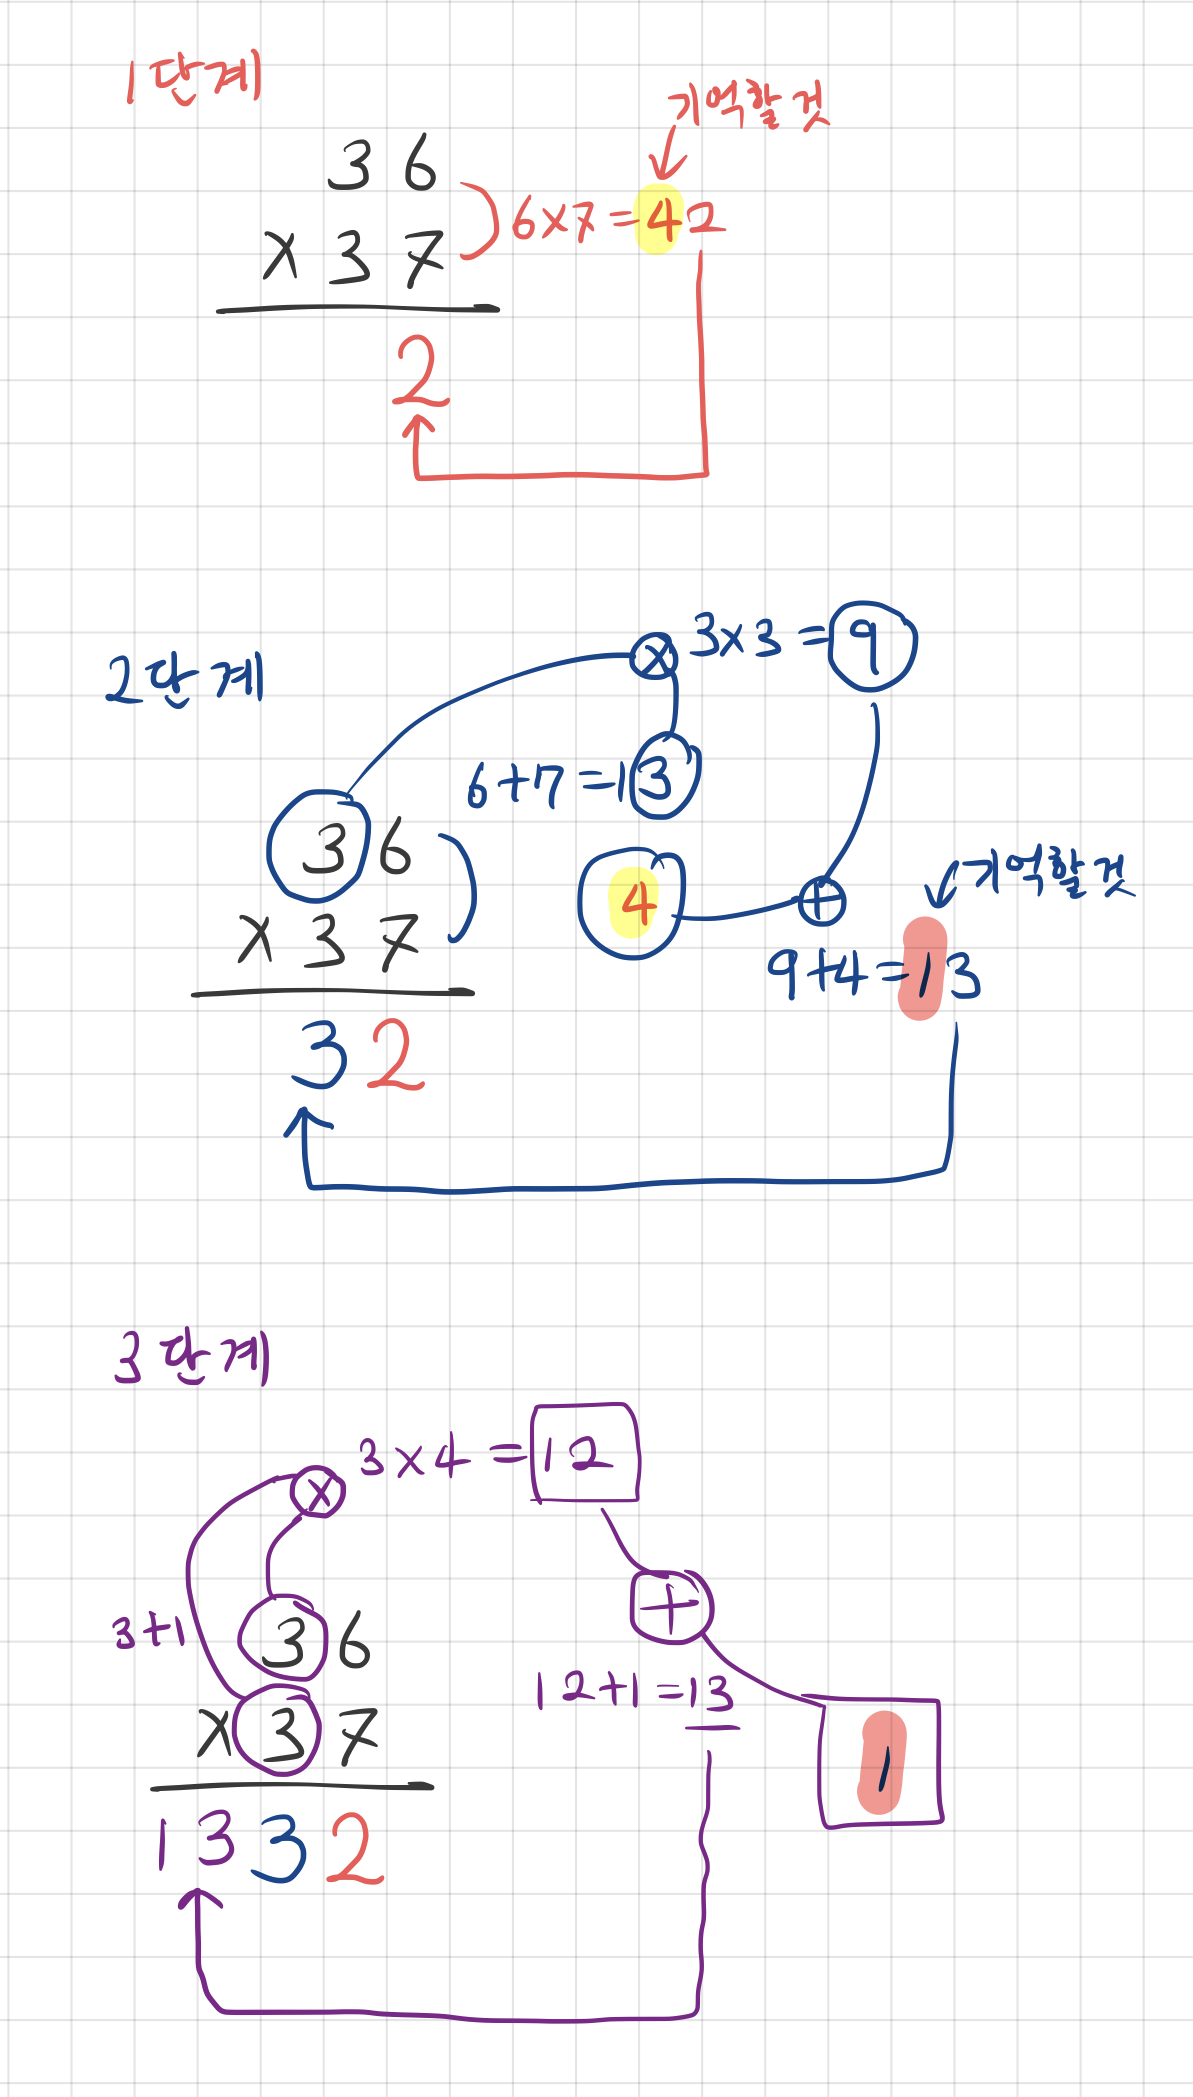 1단계
기억할것
36
6×7=42
×37
2
2단계
3×3=9
6+7=13
36
4
기억할것
×37
9+4=13
32
3단계
3×4=12
3+1
36
12+1=13
×37
1
1332